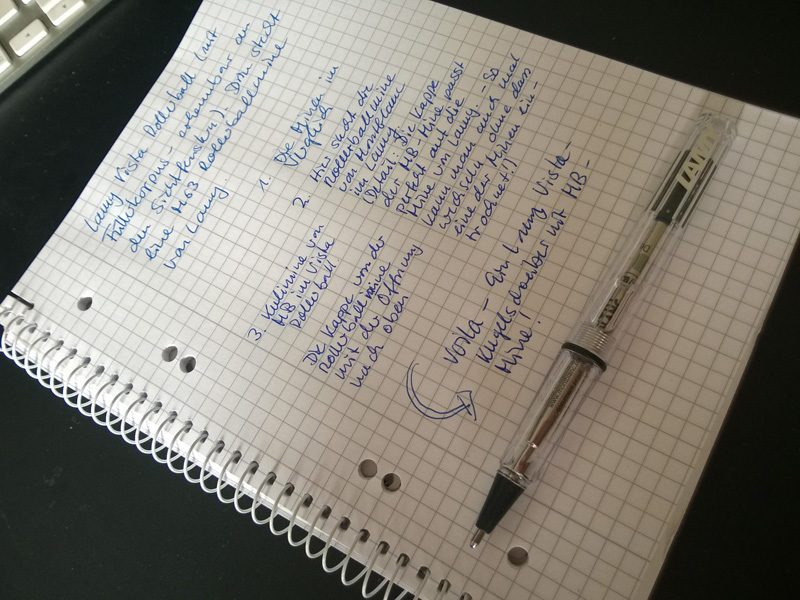 Lamy Vista Rollerball (mit
Füllerkorpus - erkennbar an
den Sichtfenstern). Drin steckt
eine M63 Rollerballmine
von Lamy.
1. Die Minen im
Vergleich
2. Hier steckt die
Rollerballmine
von Montblanc
im Lamy
(Detail: Die Kappe
der MB-Mine passt
perfekt auf die
Mine von Lamy. - So
kann man auch mal
wechseln ohne dass
eine der Minen ein-
trocknet!)
3. Kulimine von
MB im Vista
Rollerball
Die Kappe von der
Rollerballmine
mit der Öffnung
nach oben
Voila - Ein Lamy Vista-
Kugelschreiber mit MB-
Mine!
LAMY